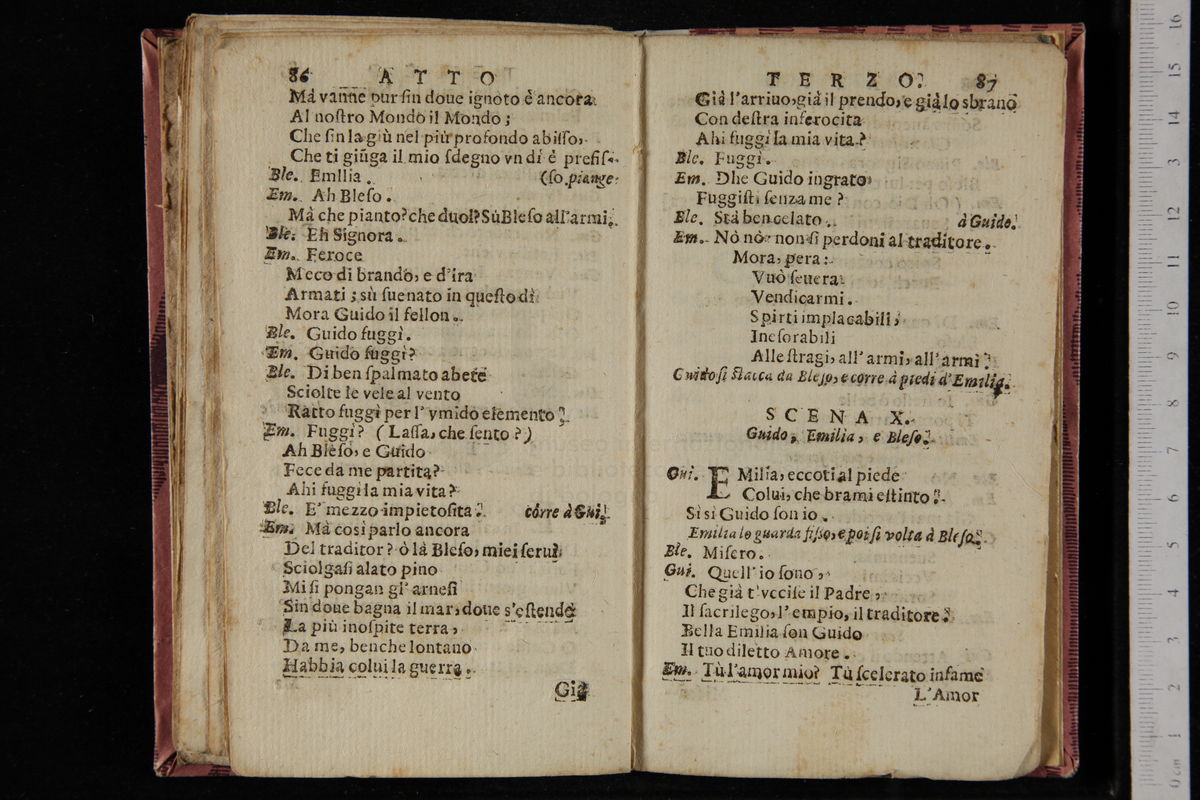 86 ATTO
Mà vanne pur ſin doue ignoto è ancora
Al noſtro Mondo il Mondo ;
Che ſin la giù nel più profondo abiſſo,
Che ti giūga il mio ſdegno vn dì è prefiſ-
Ble. Emilia . (ſo. piange.
Em. Ah Bleſo .
Mà che pianto? che duol? Sù Bleſo all'armi.
Ble. Eh Signora .
Em. Feroce
Meco di brando, e d'ira
Armati ; sù ſuenato in queſto dì
Mora Guido il fellon .
Ble. Guido fuggì.
Em. Guido fuggì?
Ble. Di ben ſpalmato abete
Sciolte le vele al vento
Ratto fuggì per l'vmido elemento .
Em. Fuggì? (Laſſa, che ſento ?)
Ah Bleſo, e Guido
Fece da me partita?
Ahi fuggì la mia vita?
Ble. E' mezzo impietoſita . corre à Gui.
Em. Mà così parlo ancora
Del traditor? ò là Bleſo, miei ſerui
Sciolgaſi alato pino
Mi ſi pongan gl'arneſi
Sin doue bagna il mar, doue s'eſtende
La più inoſpite terra ,
Da me, benche lontano
Habbia colui la guerra .
Già
TERZO. 87
Già l'arriuo, già il prendo, e già lo sbrano
Con deſtra inferocita
Ahi fuggì la mia vita?
Ble. Fuggì .
Em. Dhe Guido ingrato
Fuggiſti ſenza me ?
Ble. Stà ben celato . à Guido.
Em. Nò nò non ſi perdoni al traditore .
Mora, pera :
Vuò ſeuera
Vendicarmi .
Spirti implacabili,
Ineſorabili
Alle ſtragi, all'armi, all'armi .
Guido ſi ſtacca da Bleſo, e corre à piedi d'Emilia.
SCENA X.
Guido, Emilia, e Bleſo.
Gui. EMilia, eccoti al piede
Colui, che brami eſtinto .
Sì sì Guido ſon io .
Emilia lo guarda fiſſo, e poi ſi volta à Bleſo.
Ble. Miſero .
Gui. Quell'io ſono ,
Che già t'vcciſe il Padre ,
Il ſacrilego, l'empio, il traditore .
Bella Emilia ſon Guido
Il tuo diletto Amore .
Em. Tù l'amor mio? Tù ſcelerato infame
L'Amor
16
15
14
13
12
11
10
9
8
7
6
5
4
3
2
1
0 cm